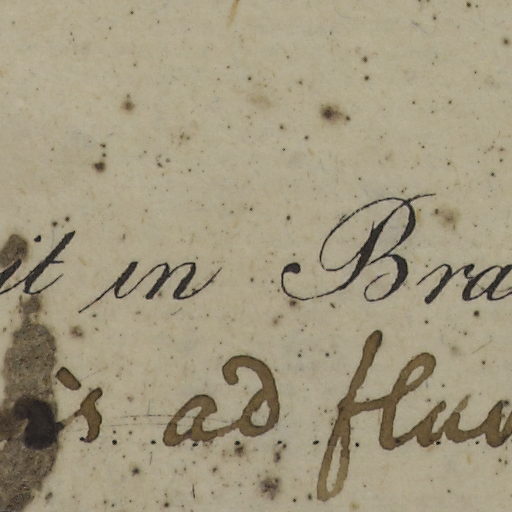 it in Bra
is ad fluv